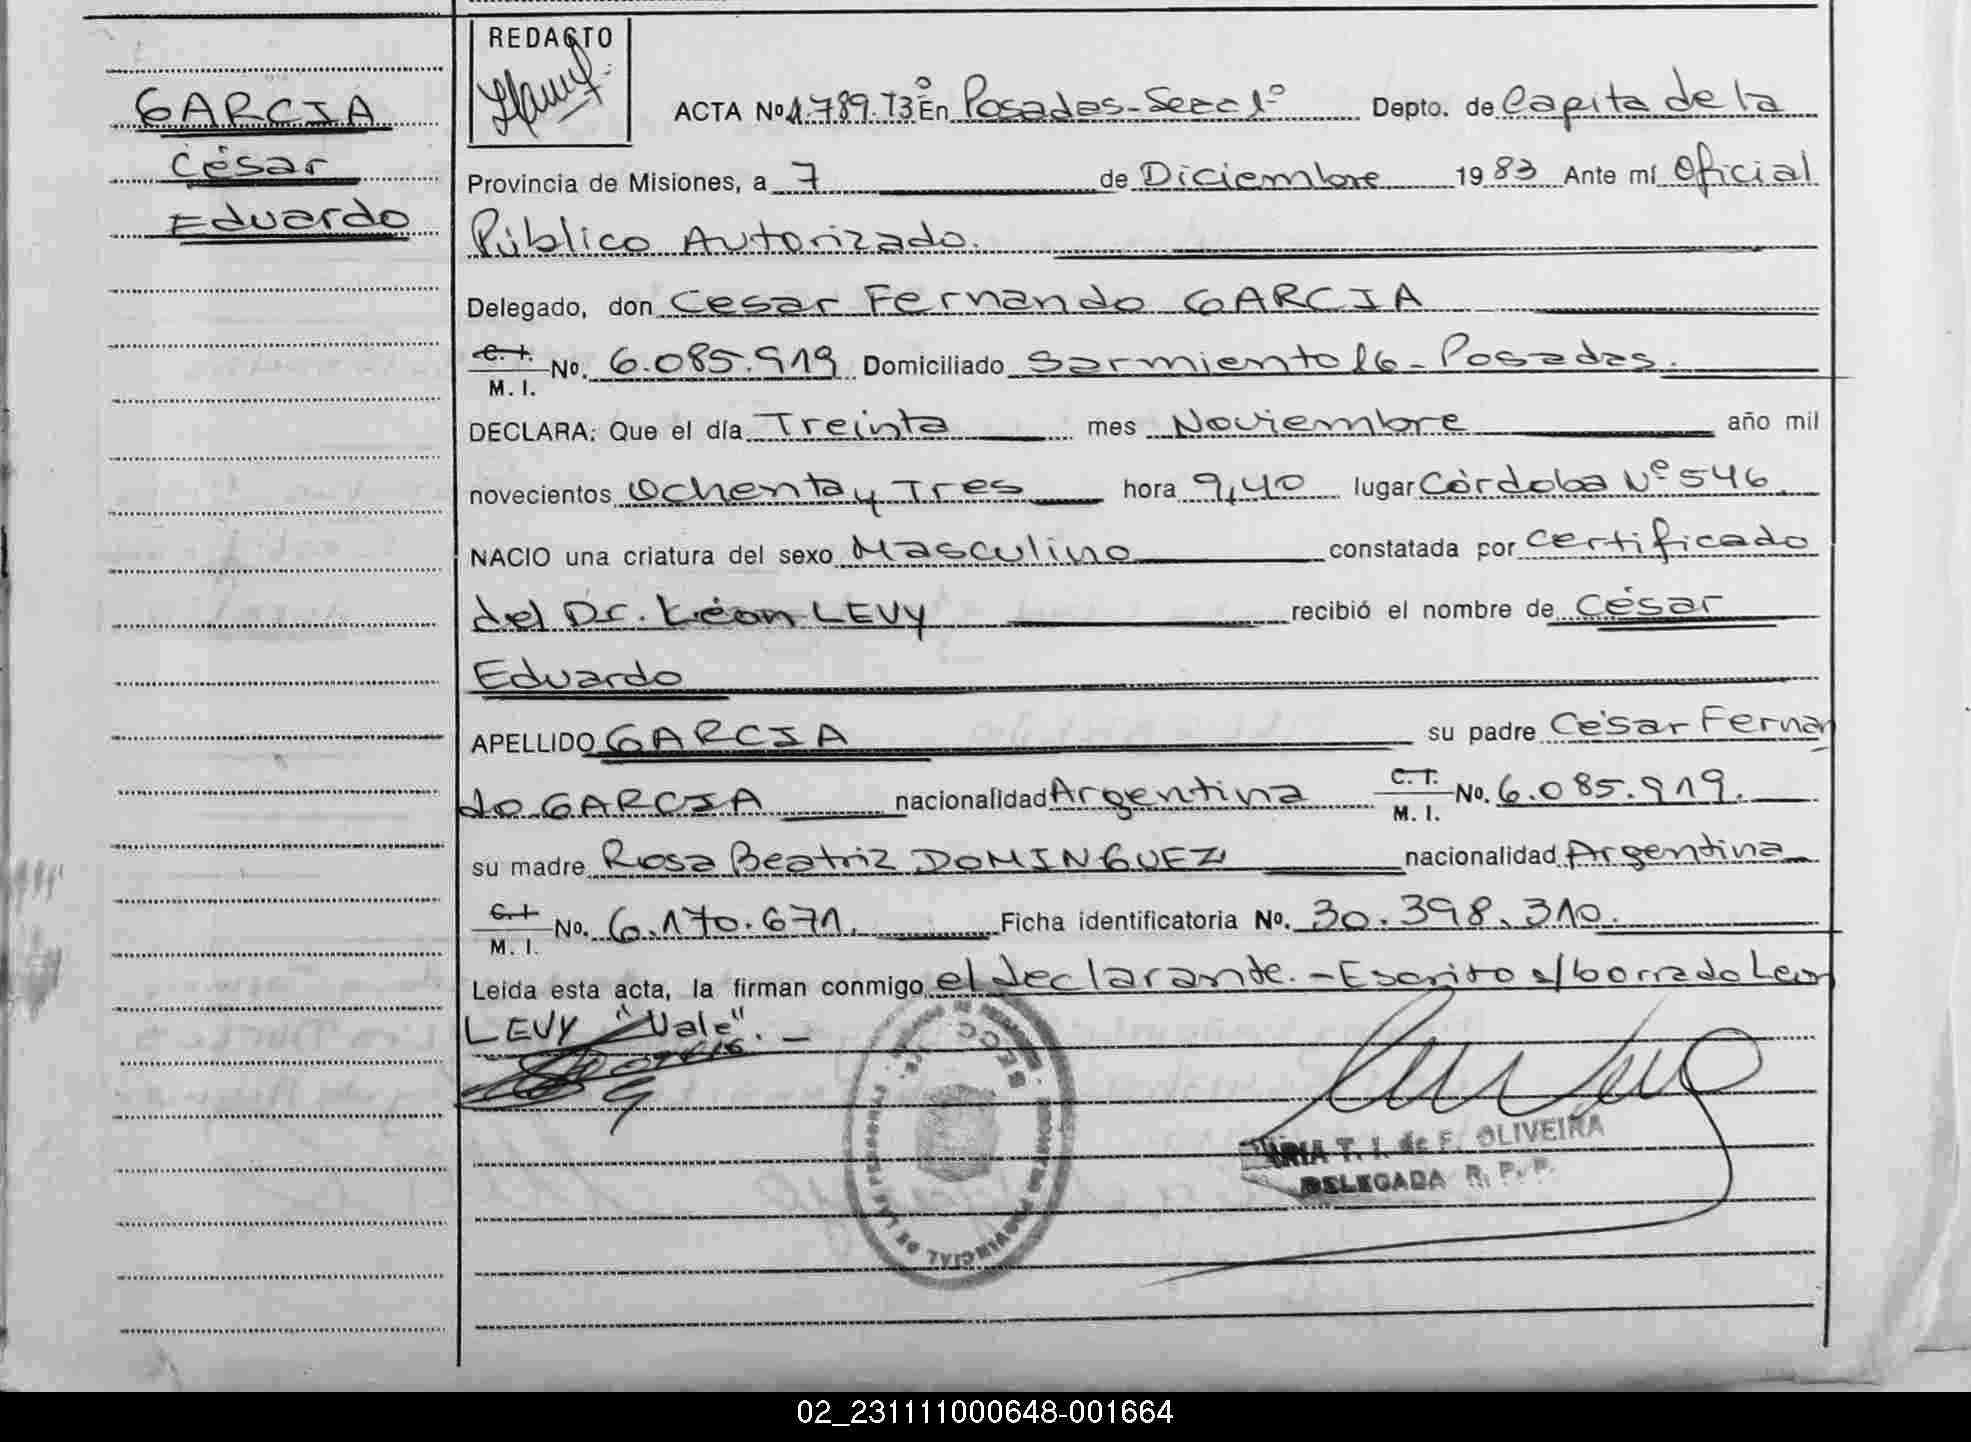 REDACTO
GARCIA
César
Eduardo
ACTA Nº 1.789.T3º En Posadas-Secc 1º Depto. de Capita de la
Provincia de Misiones, a 7 de Diciembre 1983 Ante mí Oficial
Público Autorizado.
Delegado, don Cesar Fernando GARCIA
C. I.
M. I. Nº. 6.085.919 Domiciliado Sarmiento 16 - Posadas.
DECLARA: Que el día Treinta mes Noviembre año mil
novecientos Ochenta y Tres hora 9,40 lugar Córdoba Nº 546
NACIO una criatura del sexo Masculino constatada por certificado
del Dr. Léon LEVY recibió el nombre de César
Eduardo
APELLIDO GARCIA su padre César Fernan
do GARCIA nacionalidad Argentina C. I. M. I. Nº. 6.085.919.
su madre Rosa Beatriz DOMINGUEZ nacionalidad Argentina
C. I.
M. I. Nº. 6.170.671. Ficha identificatoria Nº. 30.398.310.
Leída esta acta, la firman conmigo el declarante.-Escrito s/borrado Leon
LEVY "Vale". -
MARIA T. I. de F. OLIVEIRA
DELEGADA R. P. P.
PROVINCIAL DE LAS PERSONAS
SECC
02_231111000648-001664